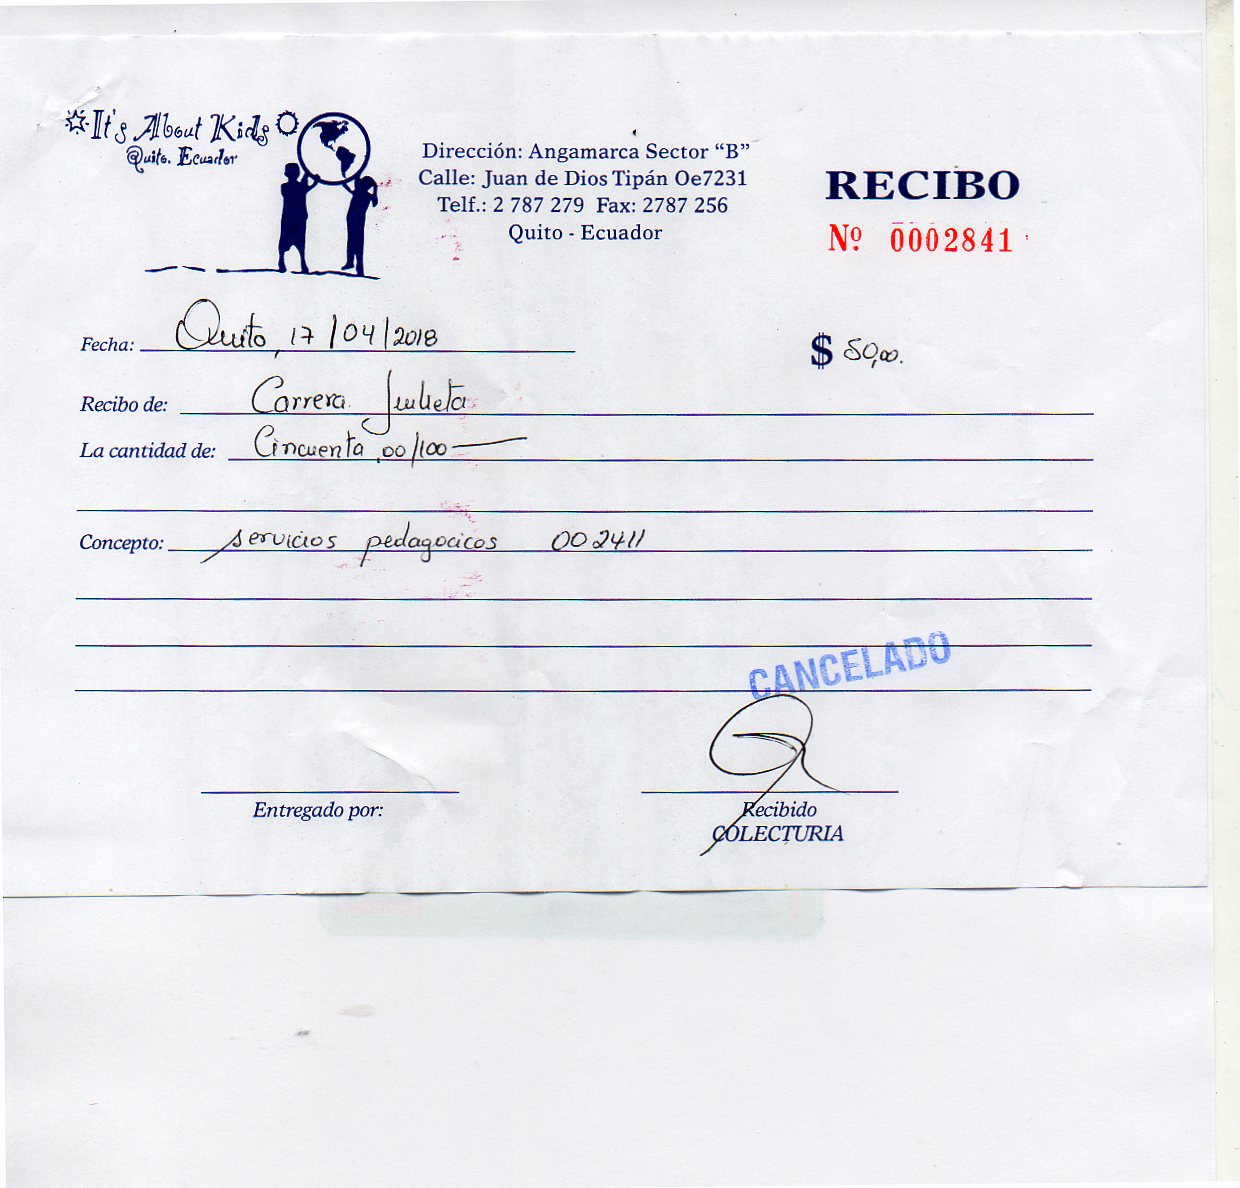 It's About Kids
Quito. Ecuador
Dirección: Angamarca Sector "B"
Calle: Juan de Dios Tipán Oe7231
Telf.: 2 787 279 Fax: 2787 256
Quito - Ecuador
RECIBO
Nº 0002841
Fecha: Quito, 17/04/2018
$ 50,00.
Recibo de: Carrera Julieta
La cantidad de: Cincuenta ,00/100
Concepto: servicios pedagocicos 002411
CANCELADO
Entregado por:
Recibido
COLECTURIA